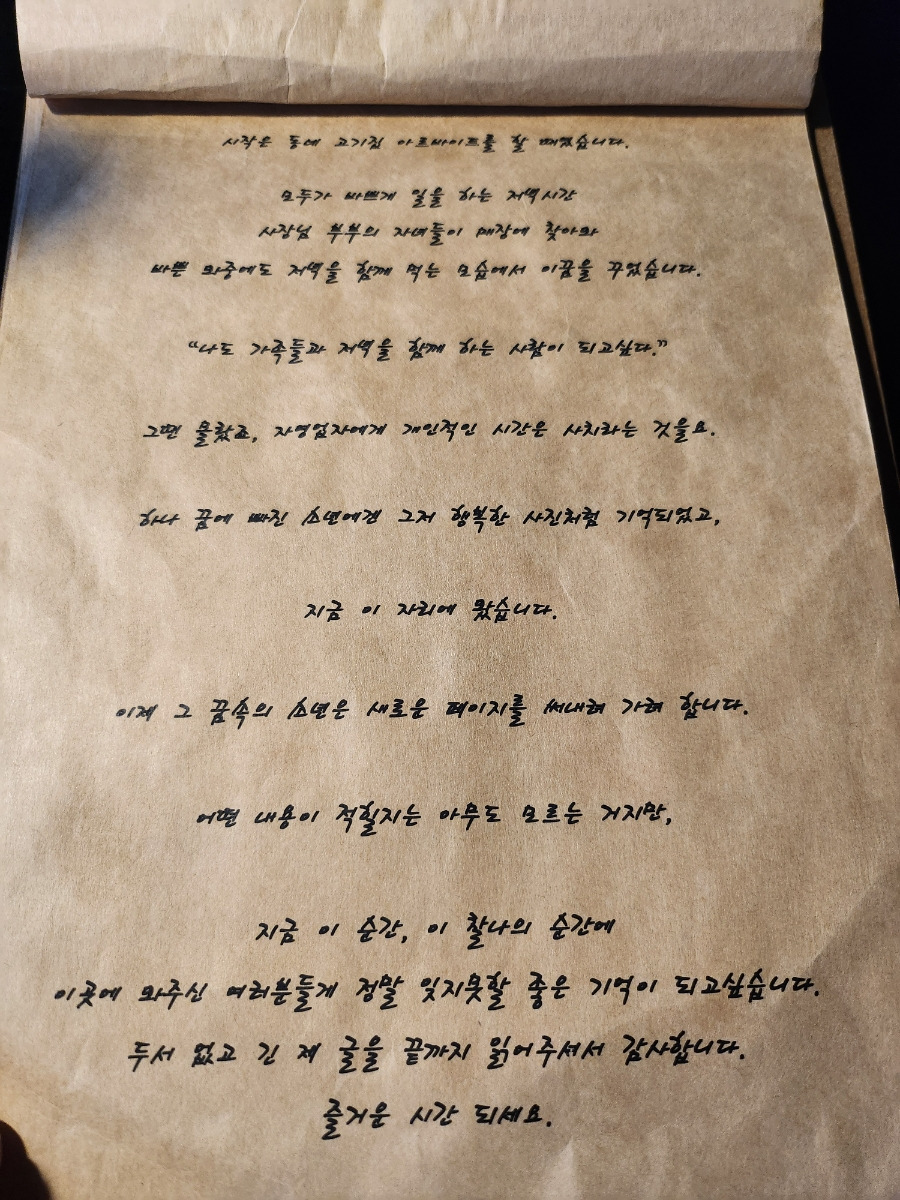 시작은 동네 고기집 아르바이트를 할 때였습니다.
모두가 바쁘게 일을 하는 저녁시간
사장님 부부의 자녀들이 매장에 찾아와
바쁜 와중에도 저녁을 함께 먹는 모습에서 이꿈을 꾸었습니다.
“나도 가족들과 저녁을 함께 하는 사람이 되고싶다.”
그땐 몰랐죠, 자영업자에게 개인적인 시간은 사치라는 것을요.
하나 꿈에 빠진 소년에겐 그저 행복한 사진처럼 기억되었고,
지금 이 자리에 왔습니다.
이제 그 꿈속의 소년은 새로운 페이지를 써내려 가려 합니다.
어떤 내용이 적힐지는 아무도 모르는 거지만,
지금 이 순간, 이 찰나의 순간에
이곳에 와주신 여러분들게 정말 잊지못할 좋은 기억이 되고싶습니다.
두서 없고 긴 제 글을 끝까지 읽어주셔서 감사합니다.
즐거운 시간 되세요.